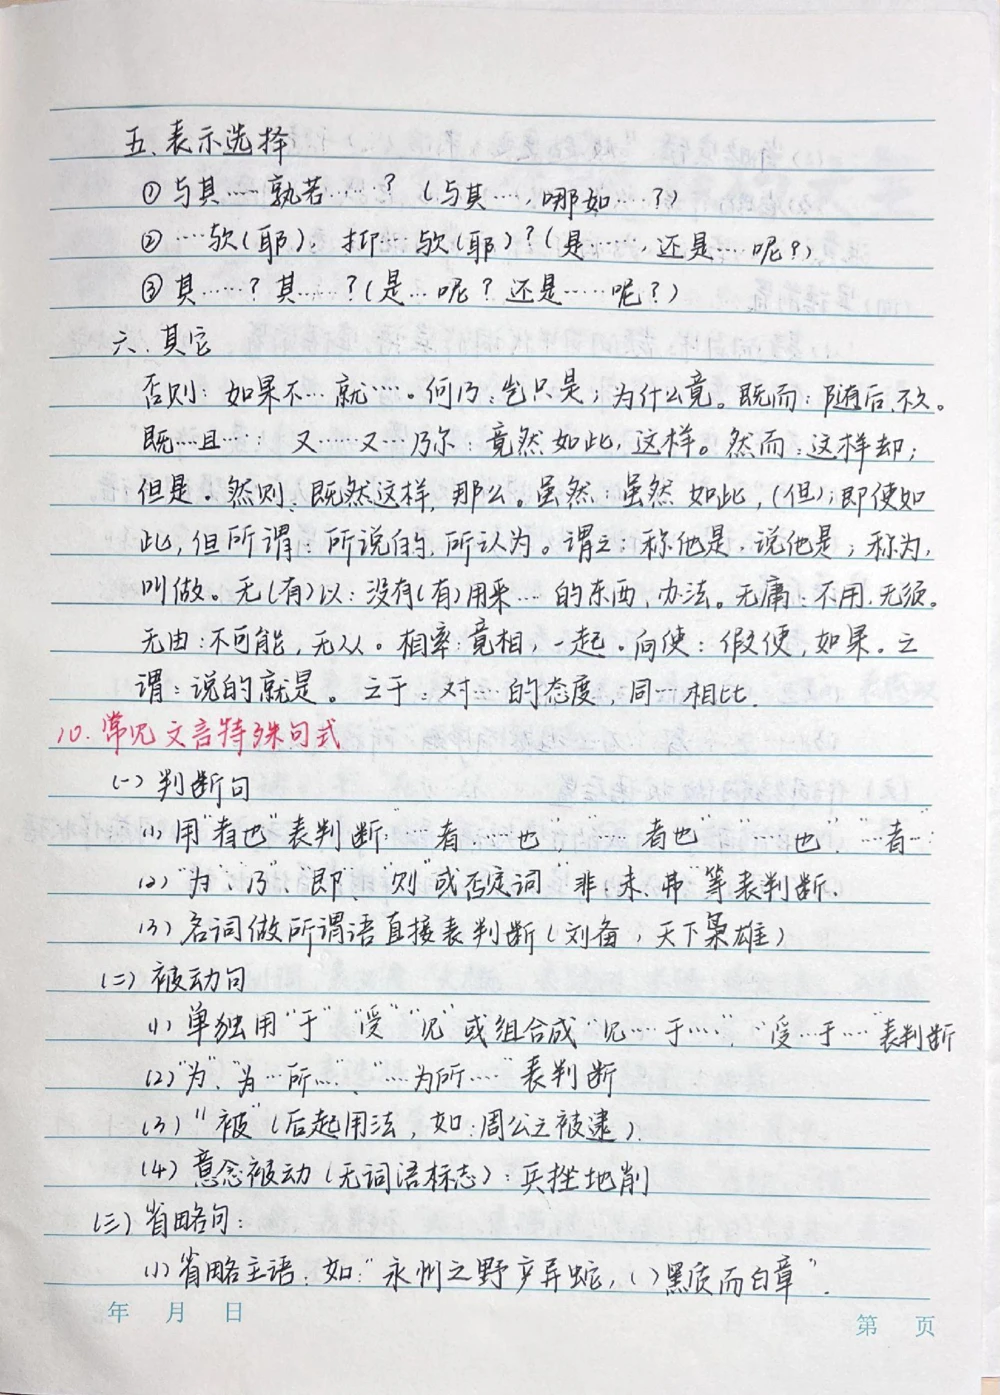 五、表示选择
①与其……孰若……？（与其……，哪如……？）
②……欤(耶)，抑……欤(耶)？（是……，还是……呢？）
③其……？其……？（是…呢？还是……呢？）
六、其它
否则：如果不…就……。何乃：岂只是；为什么竟。既而：随后，不久。
既……且…：又……又……乃尔：竟然如此，这样。然而：这样却；
但是。然则：既然这样，那么。虽然：虽然如此，(但)；即使如
此，但所谓：所说的，所认为。谓之：称他是，说他是；称为，
叫做。无(有)以：没有(有)用来…的东西、办法。无庸：不用，无须。
无由：不可能，无从。相率：竟相，一起。向使：假使，如果。之
谓：说的就是。之于：对…的态度，同…相比.
10.常见文言特殊句式
(一)判断句
(1)用“者也”表判断：“……者……也”“……者也”“……也”“……者…”
(2)“为、乃、即、则”或否定词“非、未、弗”等表判断.
(3)名词做所谓语直接表判断(刘备，天下枭雄)
(二)被动句
(1)单独用“于”“受”“见”或组合成“见……于……”，“受…于……”表判断
(2)“为”、“为…所…”、“……为所……”表判断
(3)“被”(后起用法，如：周公之被逮).
(4)意念被动(无词语标志)：兵挫地削
(三)省略句：
(1)省略主语.如：“永州之野产异蛇，( )黑质而白章”.
年 月 日
第 页